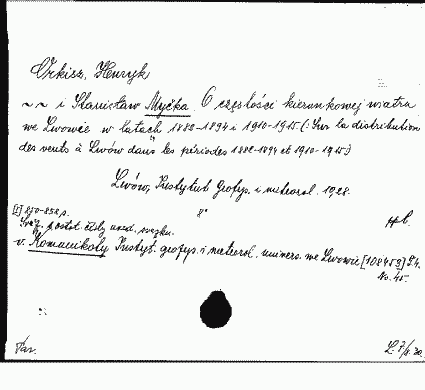 Orkisz, Henryk
~ ~ i Stanisław Myćka. O częstości kierunkowej wiatru
we Lwowie w latach 1882-1894 i 1910-1915. (: Sur la distribution
des vents à Lwów dans les périodes 1882-1894 et 1910-1915:)
Lwów, Instytut Geofys. i meteorol. 1928.
[I] 850-858 p. 8°
ostat. čísly uved. svazku.
v. Komunikaty Instyt. geofys. i meteorol. univers. we Lwowie [108453] T. 4.
No. 45.